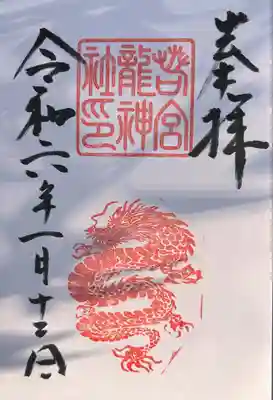 奉拝
若宮
龍神
社印
令和六年一月十三日